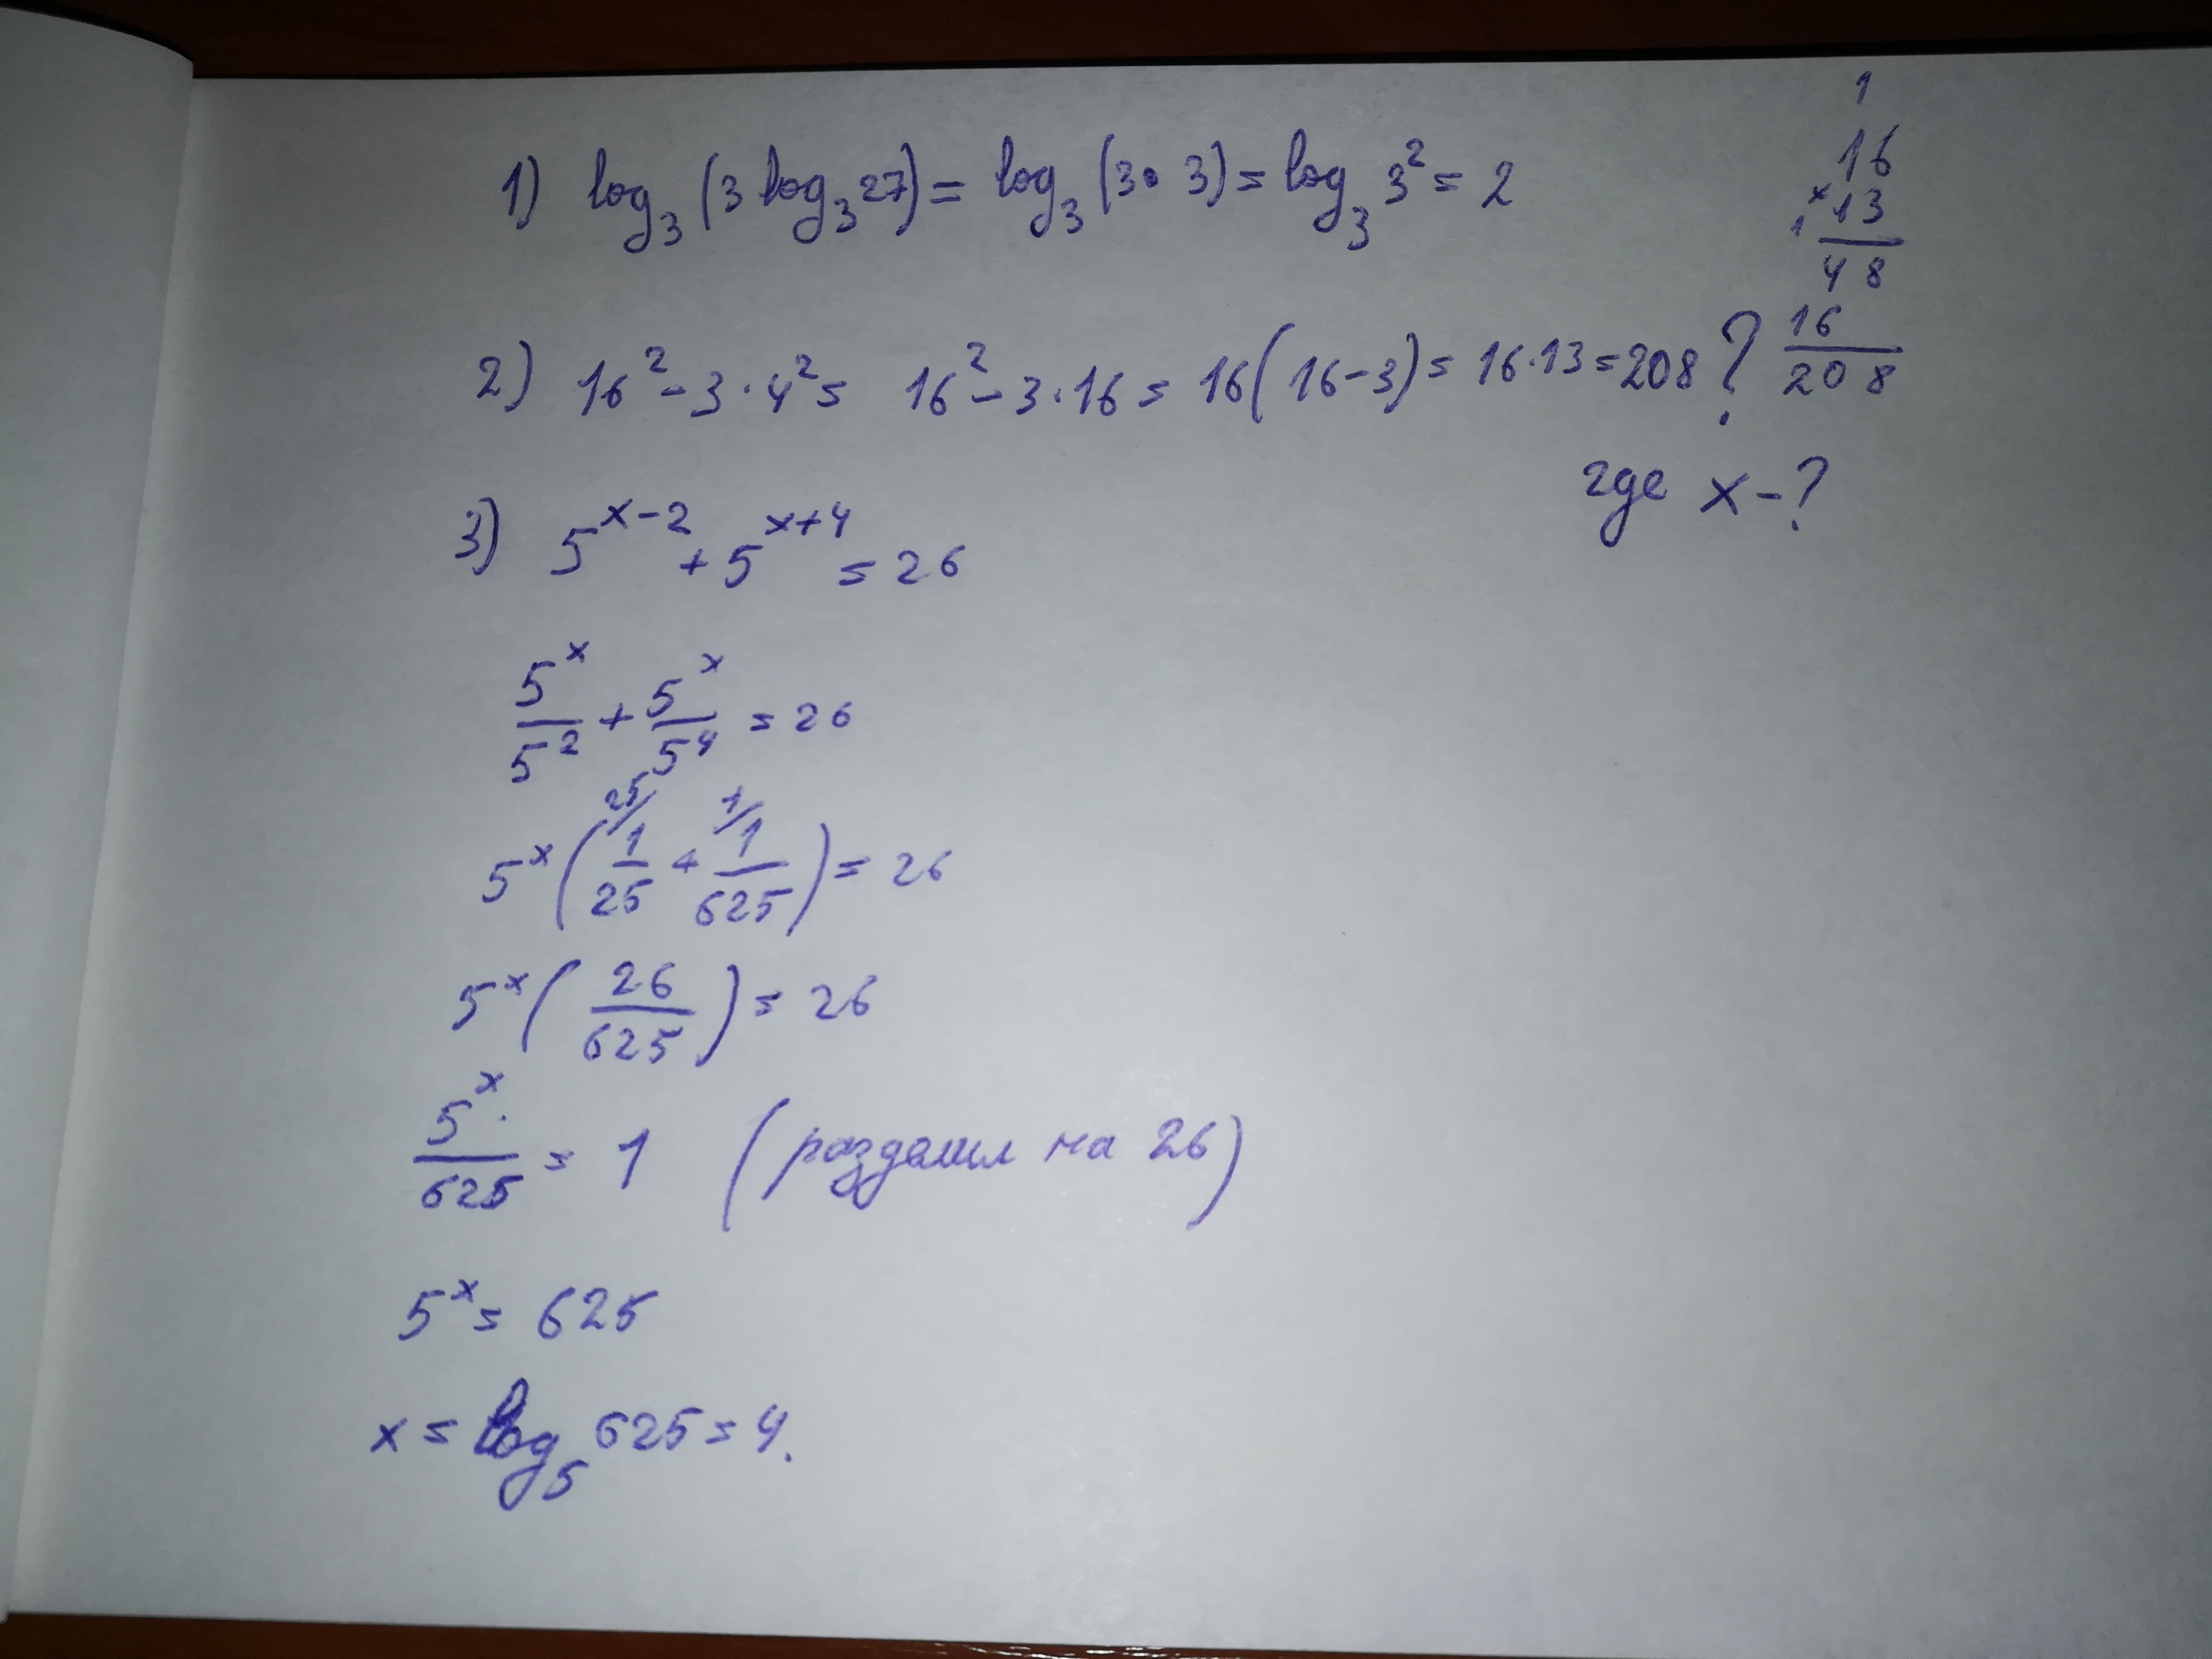 1) log₃(3 log₃27) = log₃(3 • 3) = log₃3² = 2
1
16
×13
48
16
208
2) 16² - 3 · 4² = 16² - 3 · 16 = 16(16-3) = 16·13 = 208 ?
где x - ?
3) 5^(x-2) + 5^(x+4) = 26
5^x/5² + 5^x/5⁴ = 26
25/ 1/
5^x (1/25 + 1/625) = 26
5^x (26/625) = 26
5^x/625 = 1 (разделил на 26)
5^x = 625
x = log₅625 = 4.